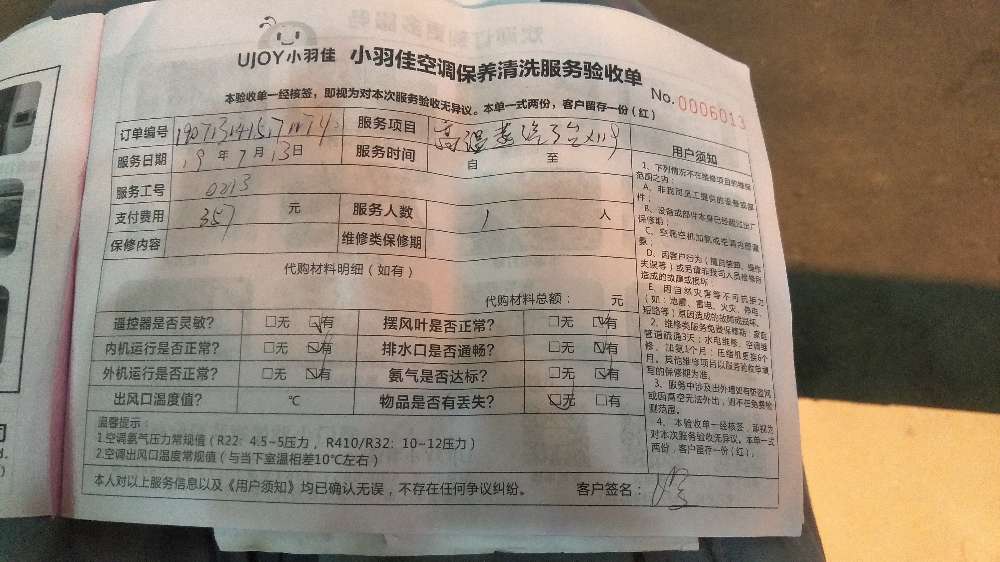 UJOY小羽佳 小羽佳空调保养清洗服务验收单
No.0006013
本验收单一经核签，即视为对本次服务验收无异议。本单一式两份，客户留存一份（红）
订单编号 服务项目 高温蒸汽
服务日期 19年7月13日 服务时间 自 至
服务工号 0213
支付费用 357 元 服务人数 1 人
保修内容 维修类保修期
代购材料明细（如有）
代购材料总额： 元
遥控器是否灵敏？ □无 ☑有 摆风叶是否正常？ □无 ☑有
内机运行是否正常？ □无 ☑有 排水口是否通畅？ □无 ☑有
外机运行是否正常？ □无 ☑有 氨气是否达标？ □无 ☑有
出风口温度值？ ℃ 物品是否有丢失？ ☑无 □有
温馨提示：
1.空调氨气压力常规值（R22：4.5~5压力，R410/R32：10-12压力）
2.空调出风口温度常规值（与当下室温相差10℃左右）
本人对以上服务信息以及《用户须知》均已确认无误，不存在任何争议纠纷。 客户签名：
用户须知
1、下列情况不在维修项目的维保
范围之内：
A、非我司员工提供的设备或部
件；
B、设备或部件本身已经超过出厂
保修期；
D、因客户行为（随自装卸、操作
失误等）或另请非我司人员维修所
造成的故障或损坏；
E、因自然灾害等不可抗拒力
（如：地震、雷电、火灾、停电、
短路等）原因造成的故障或损坏。
2、维修类服务免费保修期：家庭
管道疏通3天；水电维修、空调维
修、加氨1个月；压缩机更换6个
月。其他维修项目以服务验收单填
写的保修期为准。
3、服务中涉及出外墙如有防盗网
或因高空无法外出，则不在免费验
收范围。
4、本验收单一经核签，即视为
对本次服务验收无异议。本单一式
两份，客户留存一份（红）。